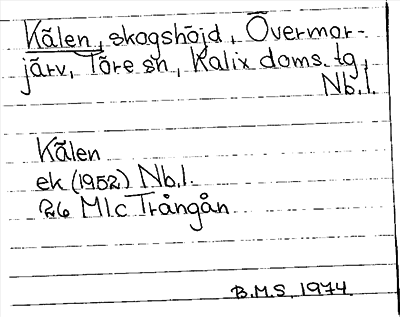 Kålen, skogshöjd, Övermor-
järv, Töre sn, Kalix doms. tg,
Nb.l.
Kålen
ek (1952) Nb.l.
26 Mlc Trångån
B.M.S. 1974.